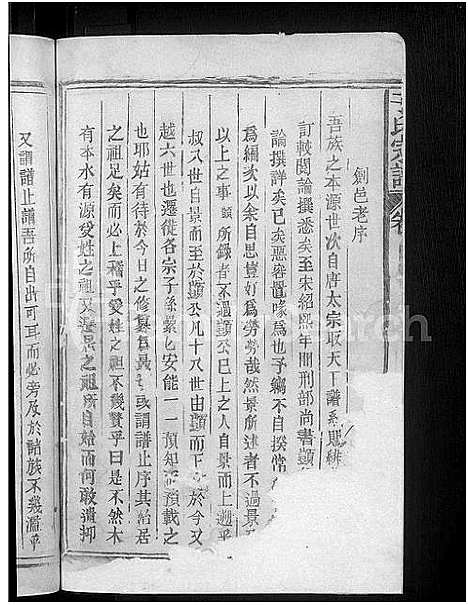 氏宗譜
劍邑老序
吾族之本源世次自唐太宗取天下譜系
訂較閱論撰悉矣至宋紹熙年間刑部尚書顗
論撰詳矣已矣惡容置喙爲也予竊不自揆常
爲編次以余自思豈好爲勞勞哉然景所述者不過景
以上之事顗所錄者不過顗公已上之人自景而上遡乎
叔八世自景而至於顗公凡十八世由顗而下於今又
越六世也遷徙各宗子孫繁匕安能一一預知而預載之
也耶姑有待於今日之修
或謂譜止序其始居
之祖足矣而必上稽乎受姓之祖不幾贅乎曰是不然木
有本水有源受姓之祖又
之祖所自始而何敢遺抑
又謂譜止譜吾所自出可耳而必旁及於諸族不幾濫乎